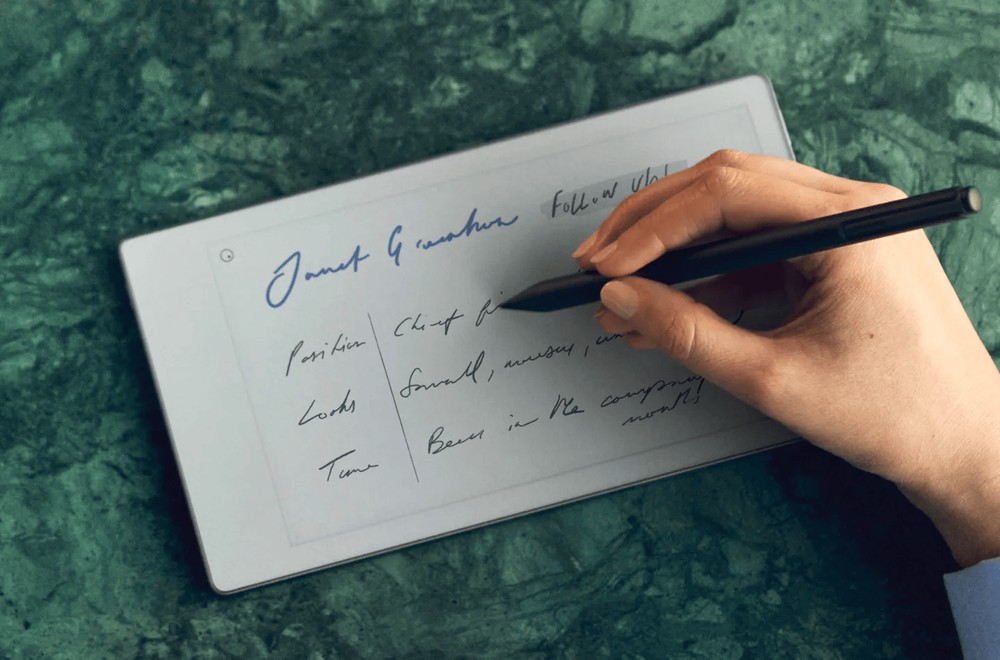 Janet G
Follow Up!
Position Chief
Looks Small, mousy,
Time Been in the company
month!